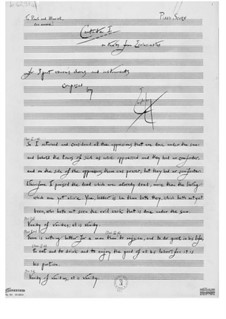 To Paul and
Piano Score
Cantata I
on texts from Ecclesiastes
for 3 part women's chorus and instruments
composed
by
So I returned and considered all the oppressions that are done under the sun
and behold the tears of such as were oppressed and they had no comforter;
and on the side of the oppressors there was power; but they had no comforter.
Wherefore I praised the dead which are already dead, more than the living
which are yet alive. Yea, better is he than both they, which hath not yet
been, who hath not seen the evil work that is done under the sun.
Vanity of vanities, all is vanity.
There is nothing better for a man than to rejoice, and to do good in his life
to eat and to drink and to enjoy the good of all his labour, for it is
his portion.
Vanity of vanities, all is vanity.